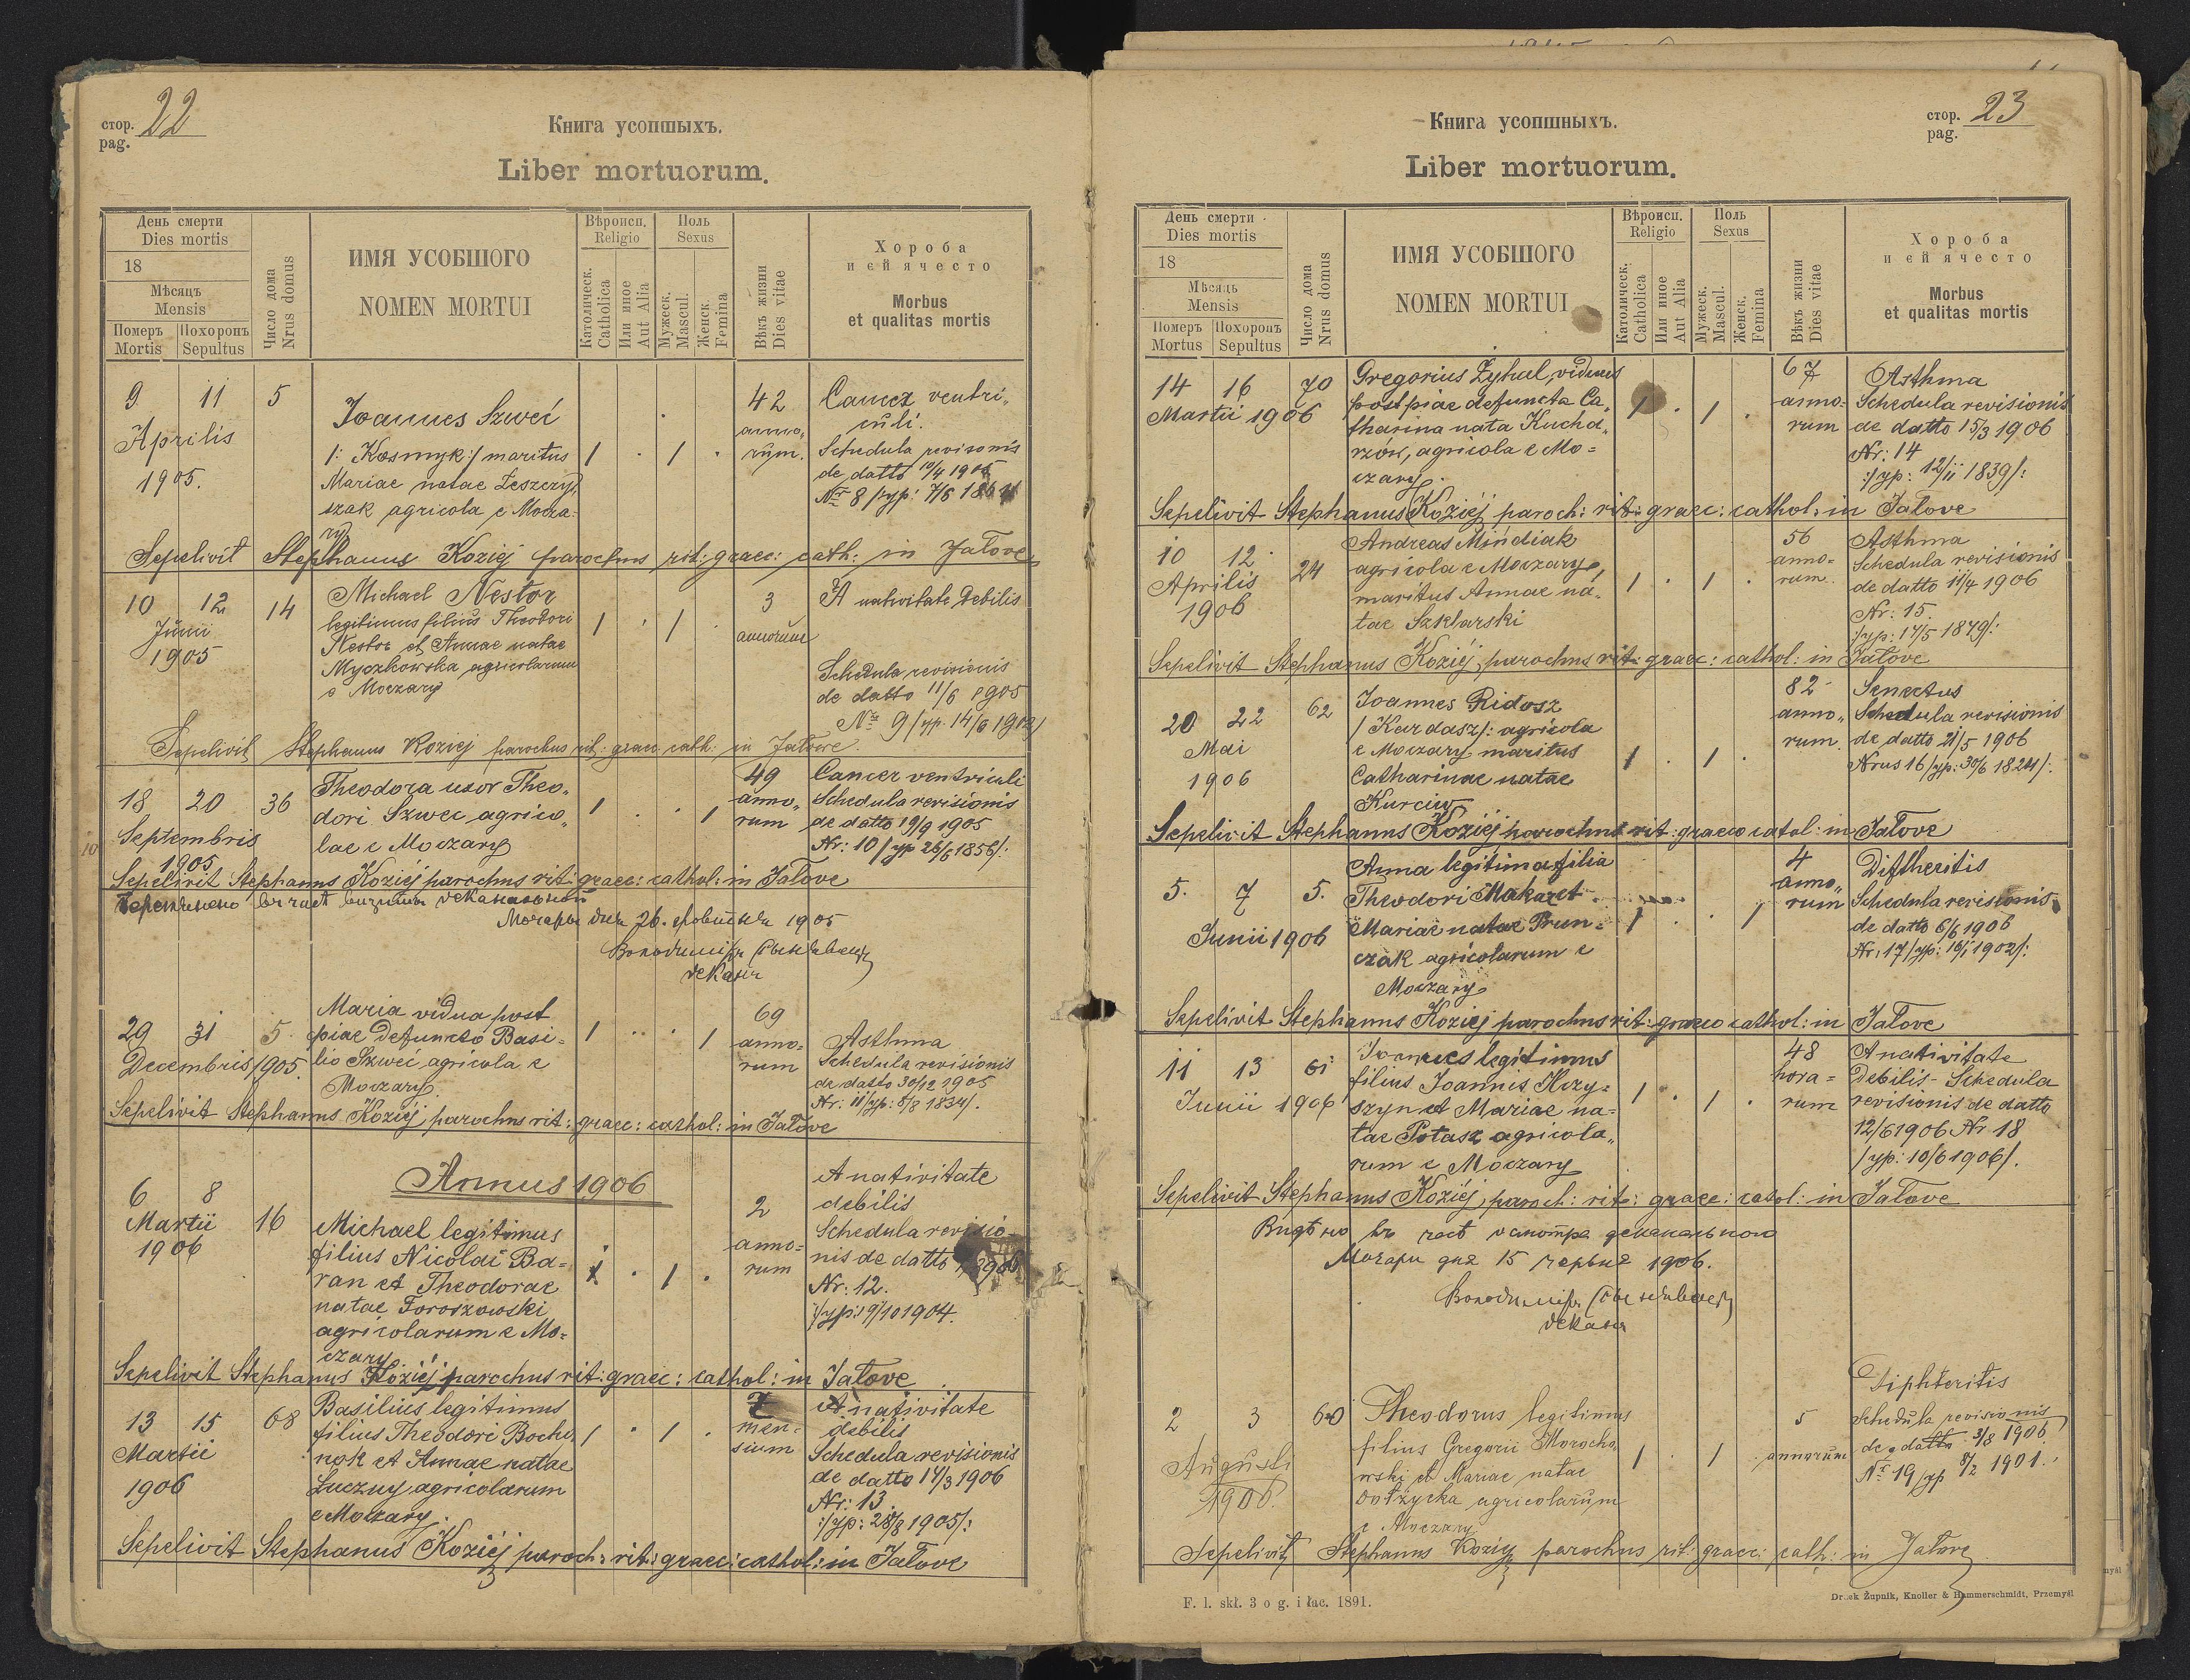 стор. 22
pag.
Книга усопшыхъ.
Liber mortuorum.
День смерти
Dies mortis
18
Мѣсяцъ
Mensis
Померъ Похоронъ
Mortis Sepultus
Число дома
Nrus domus
ИМЯ УСОБШОГО
NOMEN MORTUI
Вѣроисп.
Religio
Католическ.
Catholica
Или иное
Aut Alia
Полъ
Sexus
Мужеск.
Mascul.
Женск.
Femina
Вѣкъ жизни
Dies vitae
Хороба
и єй ячесто
Morbus
et qualitas mortis
9 11 5
Aprilis
1905.
Joannes Szweć
/: Kosmyk :/ maritus
Mariae natae Leszczy
szak agricola e Mocza-
ry
1 . 1 .
42
anno„
rum.
Cancer ventri„
culi.
Schedula revisionis
de datto 10/4 1905
Nr 8
Sepelivit Stephanus Koziej parochus rit: graec: cath: in Jałove
10 12 14
Junii
1905
Michael Nestor
legitimus filius Theodori
Nestor et Annae natae
Myczkowska agricolarum
e Moczary
1 . 1 .
3
annorum
A nativitate Debilis
Schedula revisionis
de datto 11/6 1905
Nr 9 /yp. 14/6 1902/
Sepelivit Stephanus Koziej parochus rit: graec cath: in Jałove
18 20 36
Septembris
1905
Theodora uxor Theo„
dori Szwec agrico„
lae e Moczary
1 . . 1
49
anno„
rum
Cancer ventriculi
Schedula revisionis
de datto 19/9 1905
Nr: 10 /yp 26/6 1856/:
Sepelivit Stephanus Koziej parochus rit: graec: cathol: in Jałove
10
Мочары дня 26. 1905
деканъ
29 31 5
Decembris 1905.
Maria vidua post
piae Defuncto Basi=
lio Szweć agricola e
Moczary
1 . . 1
69
anno=
rum
Asthma
Schedula revisionis
de datto 30/12 1905
Nr: 11 /yp: 5/8 1834/.
Sepelivit Stephanus Koziej parochus rit: graec: cathol: in Jałove
Annus 1906
6 8 16
Martii
1906
Michael legitimus
filius Nicolai Ba=
ran et Theodorae
natae Foroszowski
agricolarum e Mo=
czary
1 . 1 .
2
anno=
rum
A nativitate
debilis
Schedula revisio
nis de datto
Nr: 12.
/yp: 19/10 1904.
Sepelivit Stephanus Koziej parochus rit: graec: cathol: in Jałove
13 15 68
Martii
1906
Basilius legitimus
filius Theodori Bocho
nok et Annae natae
Łuczny agricolarum
e Moczary.
1 . 1 .
7
men=
sium
A nativitate
debilis
Schedula revisionis
de datto 14/3 1906
Nr: 13
:/yp: 28/8 1905/:
Sepelivit Stephanus Koziej paroch: rit: graec: cathol: in Jałove
стор. 23
pag.
Книга усопшныхъ.
Liber mortuorum.
День смерти
Dies mortis
18
Мѣсяцъ
Mensis
Померъ Похоронъ
Mortus Sepultus
Число дома
Nrus domus
ИМЯ УСОБШОГО
NOMEN MORTUI
Вѣроисп.
Religio
Католическ.
Catholica
Или иное
Aut Alia
Полъ
Sexus
Мужеск.
Mascul.
Женск.
Femina
Вѣкъ жизни
Dies vitae
Хороба
и єй ячесто
Morbus
et qualitas mortis
14 16 70
Martii 1906
Gregorius Zyhal, viduus
post piae defuncta Ca„
tharina nata Kucha„
rzów, agricola e Mo=
czary.
1 . 1 .
67
anno=
rum
Asthma
Schedula revisionis
de datto 15/3 1906
Nr: 14
:/yp: 12/ii 1839/:
Sepelivit Stephanus Koziej paroch: rit: graec: cathol: in Jałove
10 12 24
Aprilis
1906
Andreas Mindiak
agricola e Moczary,
maritus Annae na„
tae Szklarski
1 . 1 .
56
anno=
rum
Asthma
Schedula revisionis
de datto 11/4 1906
Nr: 15.
/yp: 17/5 1849/:
Sepelivit Stephanus Koziej parochus rit: graec: cathol: in Jałove
20 22 62
Mai
1906
Joannes Ridosz
/Kardasz/: agricola
e Moczary maritus
Catharinae natae
Kurciw
1 . 1 .
82
anno„
rum.
Senectus
Schedula revisionis
de datto 21/5 1906
Nrus 16 /yp: 30/6 1824/:
Sepelivit Stephanus Koziej parochus rit: graeco catol: in Jałove
5. 7 5.
Junii 1906
Anna legitima filia
Theodori Makaret
Mariae natae Prun=
czak agricolarum e
Moczary
1 . . 1
4
anno„
rum
Diftheritis
Schedula revisionis
de datto 6/6 1906
Nr: 17 /yp: 16/1 1902/:
Sepelivit Stephanus Koziej parochus rit: graeco cathol: in Jałove
11 13 61
Junii 1906
Joannes legitimus
filius Joannis Hrzy=
szyn et Mariae na=
tae Potasz agricola„
rum e Moczary
1 . 1 .
48
hora=
rum
A nativitate
Debilis - Schedula
revisionis de datto
12/6 1906 Nr 18
/yp: 10/6 1906/.
Sepelivit Stephanus Koziej paroch: rit: graec: catol: in Jałove
Видѣно въ часѣ осмотра деканального
Мочари дня 15 червня 1906.
деканъ
2 3 60
Augusti
1906.
Theodorus legitimus
filius Gregorii Morocho
wski et Mariae natae
Dołżycka agricolarum
e Moczary
1 . 1 .
5
annorum
Diphteritis
Schedula revisionis
de datto 3/8 1906
Nr 19 /yp 8/2 1901.
Sepelivit Stephanus Koziej parochus rit: graec: cath: in Jałove
F. l. skł. 3 o g. i łac. 1891.
Druek Żupnik, Knoller & Hammerschmidt, Przemyśl